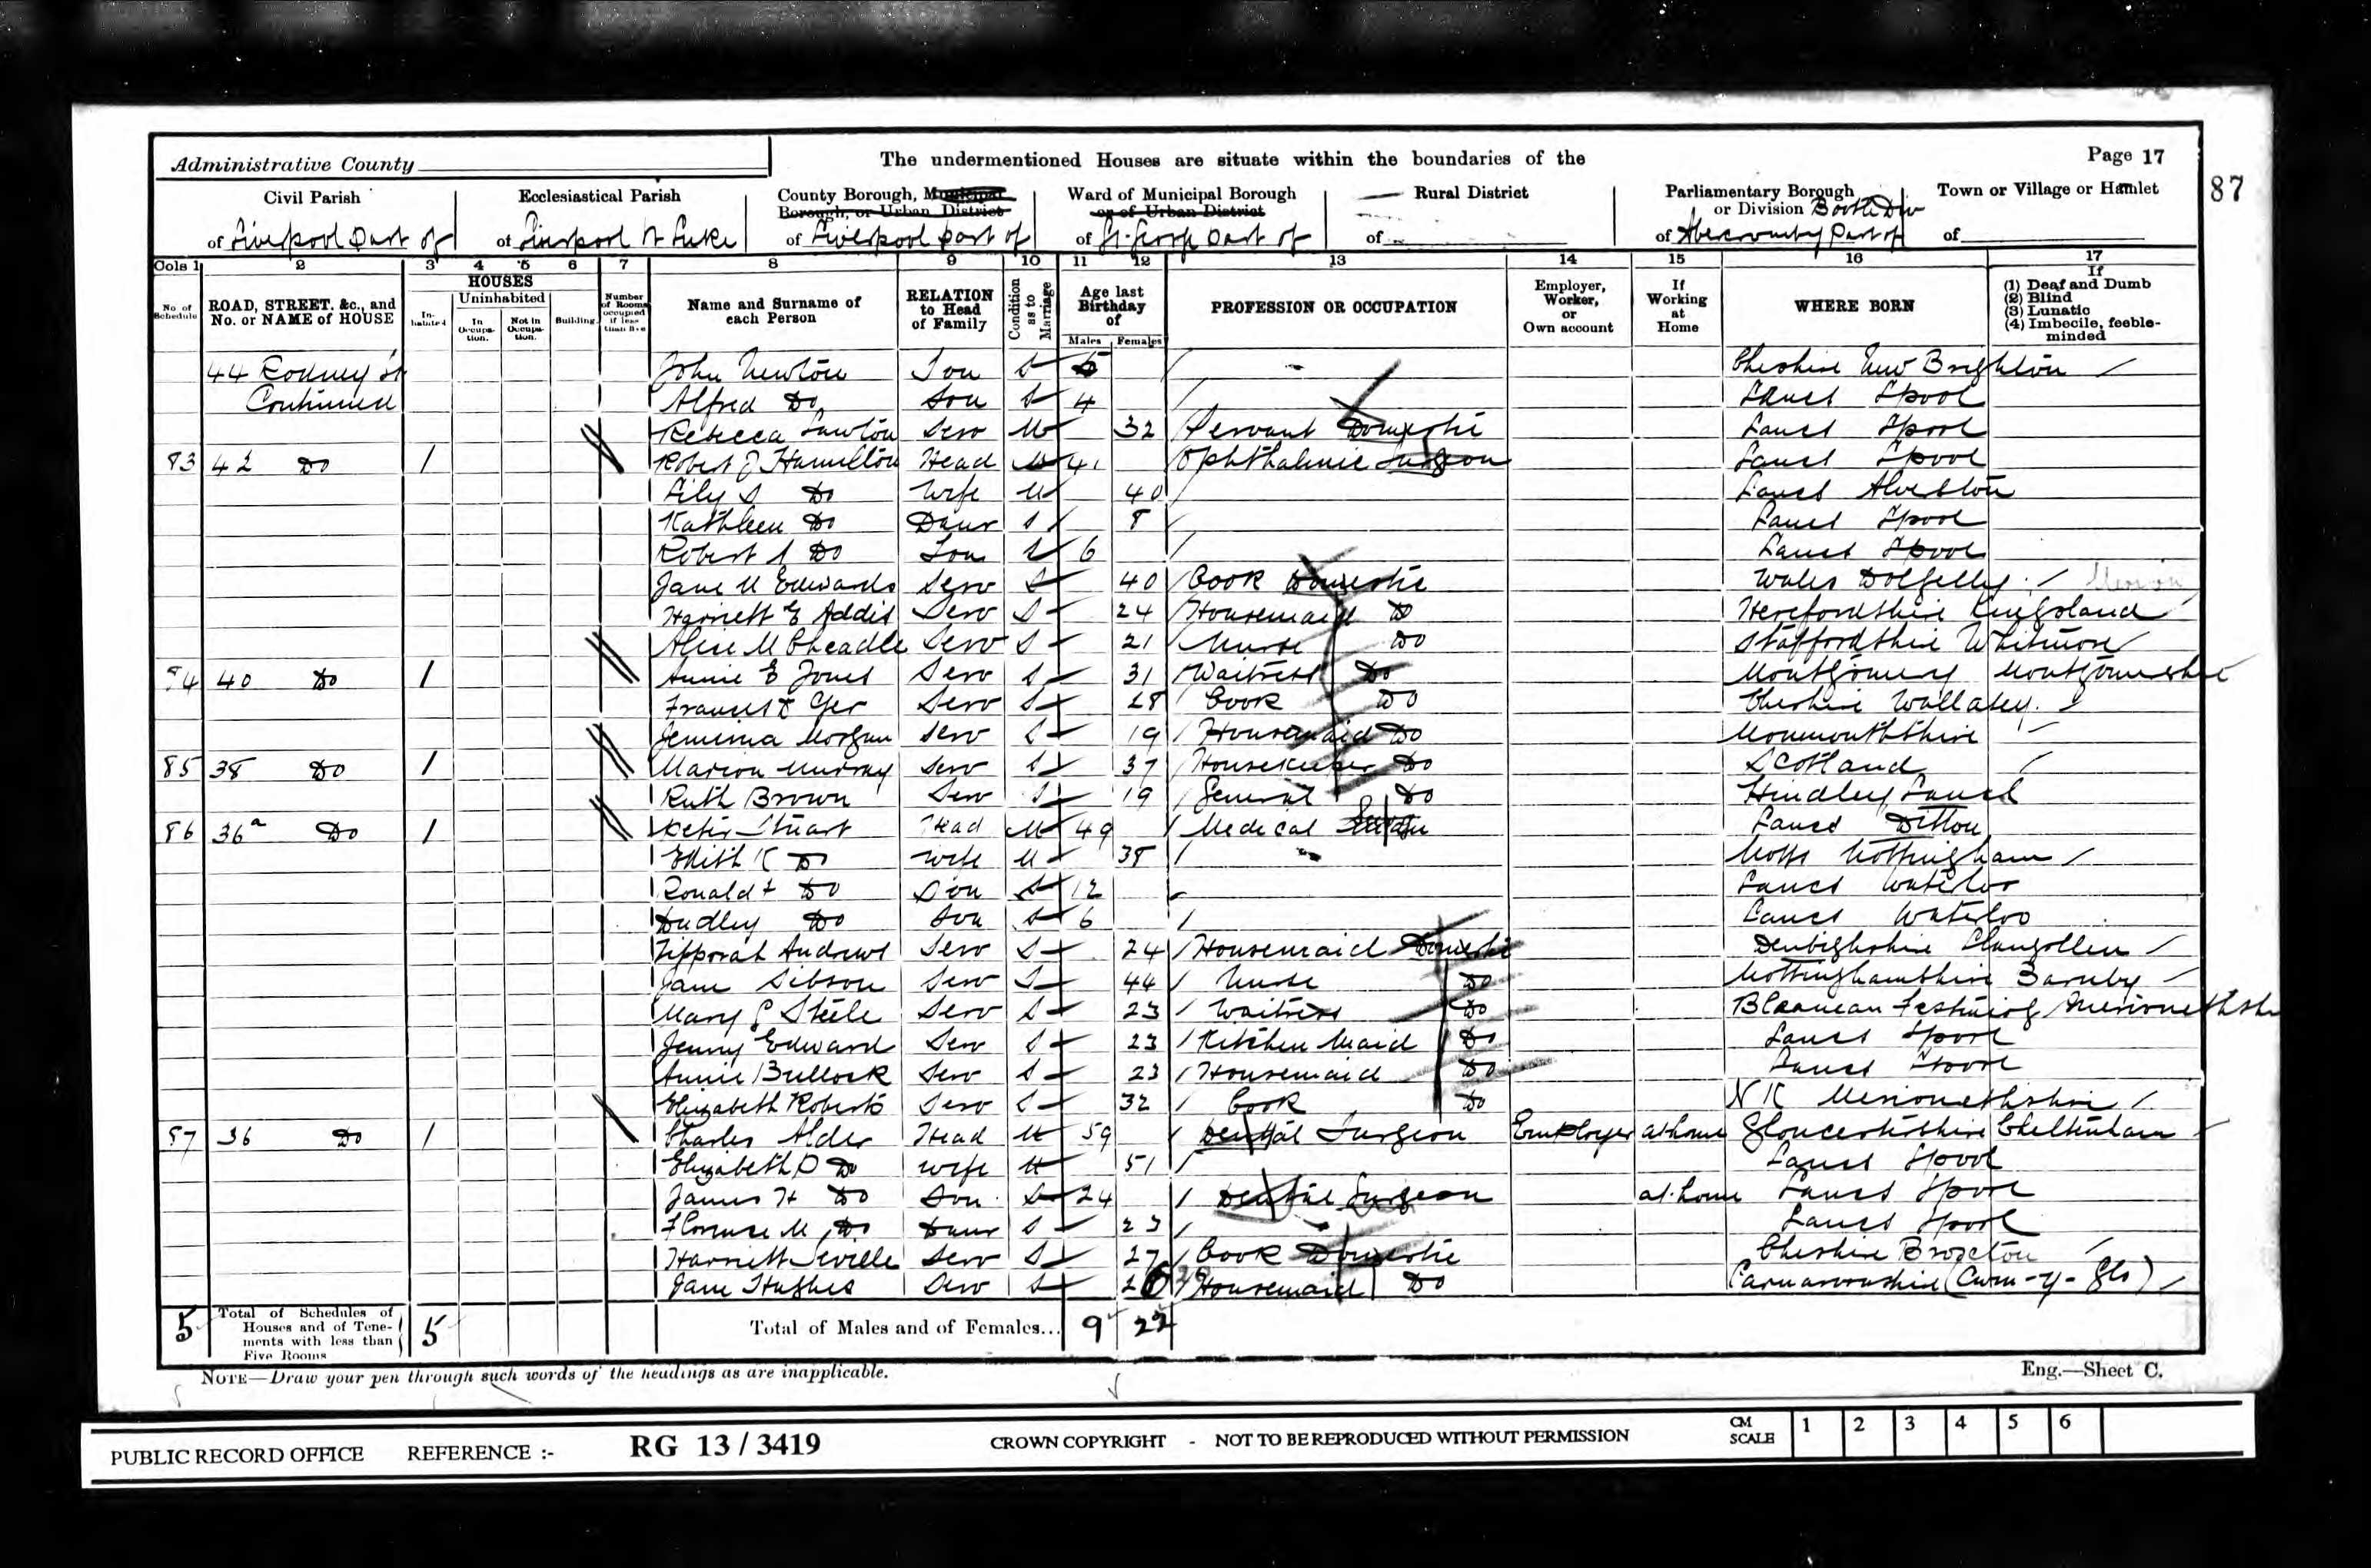 Administrative County
The undermentioned Houses are situate within the boundaries of the
Page 17
87
Civil Parish
of Liverpool Part of
Ecclesiastical Parish
of Liverpool St Luke
County Borough, Municipal Borough, or Urban District
of Liverpool part of
Ward of Municipal Borough or of Urban District
of St. George part of
Rural District
of
Parliamentary Borough or Division Bootle Div
of Abercromby Part of
Town or Village or Hamlet
of
Cols 1 2 3 4 5 6 7 8 9 10 11 12 13 14 15 16 17
No. of Schedule
ROAD, STREET, &c., and No. or NAME of HOUSE
HOUSES
Inhabited
Uninhabited
In Occupation.
Not in Occupation.
Building.
Number of Rooms occupied if less than five
Name and Surname of each Person
RELATION to Head of Family
Condition as to Marriage
Age last Birthday of
Males Females
PROFESSION OR OCCUPATION
Employer, Worker, or Own account
If Working at Home
WHERE BORN
If
(1) Deaf and Dumb
(2) Blind
(3) Lunatic
(4) Imbecile, feeble-minded
44 Rodney St John Newton Son S 5 Cheshire New Brighton
Continued Alfred Do Son S 4 Lancs Lpool
Rebecca Lawton Serv 32 Servant Domestic Lancs Lpool
83 42 Do 1 Robert J Hamilton Head M 41 Ophthalmic Surgeon Lancs Lpool
Lily S Do Wife M 40 Lancs
Kathleen Do Daur S 8 Lancs Lpool
Robert A Do Son S 6 Lancs Lpool
Jane M Edwards Serv S 40 Cook Domestic Wales Dolgelly
Harriett E Addis Serv S 24 Housemaid Do Herefordshire Kingsland
Alice M Cheadle Serv S 21 Nurse Do Staffordshire Whitmore
84 40 Do 1 Annie E Jones Serv S 31 Waitress Do Montgomery Montgomeryshire
Frances Serv S 28 Cook Do Cheshire Wallasey
Jemima Morgan Serv S 19 Housemaid Do Monmouthshire
85 38 Do 1 Marion Murray Serv S 37 Housekeeper Do Scotland
Ruth Brown Serv S 19 General Do Hindley Lancs
86 36a Do 1 Peter Stuart Head M 49 Medical Lancs Ditton
Edith K Do Wife M 38 Notts Nottingham
Ronald F Do Son S 12 Lancs Waterloo
Dudley Do Son S 6 Lancs Waterloo
Zipporah Andrews Serv S 24 Housemaid Domestic Denbighshire Llangollen
Jane Gibson Serv S 44 Nurse Do Nottinghamshire Barnby
Mary G Steele Serv S 23 Waitress Do Blaenau Festiniog Merionethsh
Jenny Edward Serv S 23 Kitchen Maid Do Lancs Lpool
Annie Bullock Serv S 23 Housemaid Do Lancs Lpool
Elizabeth Roberts Serv S 32 Cook Do N K Merionethshire
87 36 Do 1 Charles Alder Head M 59 Dental Surgeon Employer at home Gloucestershire Cheltenham
Elizabeth D Do Wife M 51 Lancs Lpool
James H Do Son S 24 Dental Surgeon at home Lancs Lpool
Florence M Do Daur S 23 Lancs Lpool
Harriett Seville Serv S 27 Cook Domestic Cheshire Broxton
Jane Hughes Serv S Housemaid Do Carnarvonshire (Cwm-y-Glo)
5 Total of Schedules of Houses and of Tenements with less than Five Rooms 5 Total of Males and of Females... 9 22
NOTE—Draw your pen through such words of the headings as are inapplicable.
Eng.—Sheet C.
PUBLIC RECORD OFFICE REFERENCE :- RG 13 / 3419 CROWN COPYRIGHT - NOT TO BE REPRODUCED WITHOUT PERMISSION CM SCALE 1 2 3 4 5 6